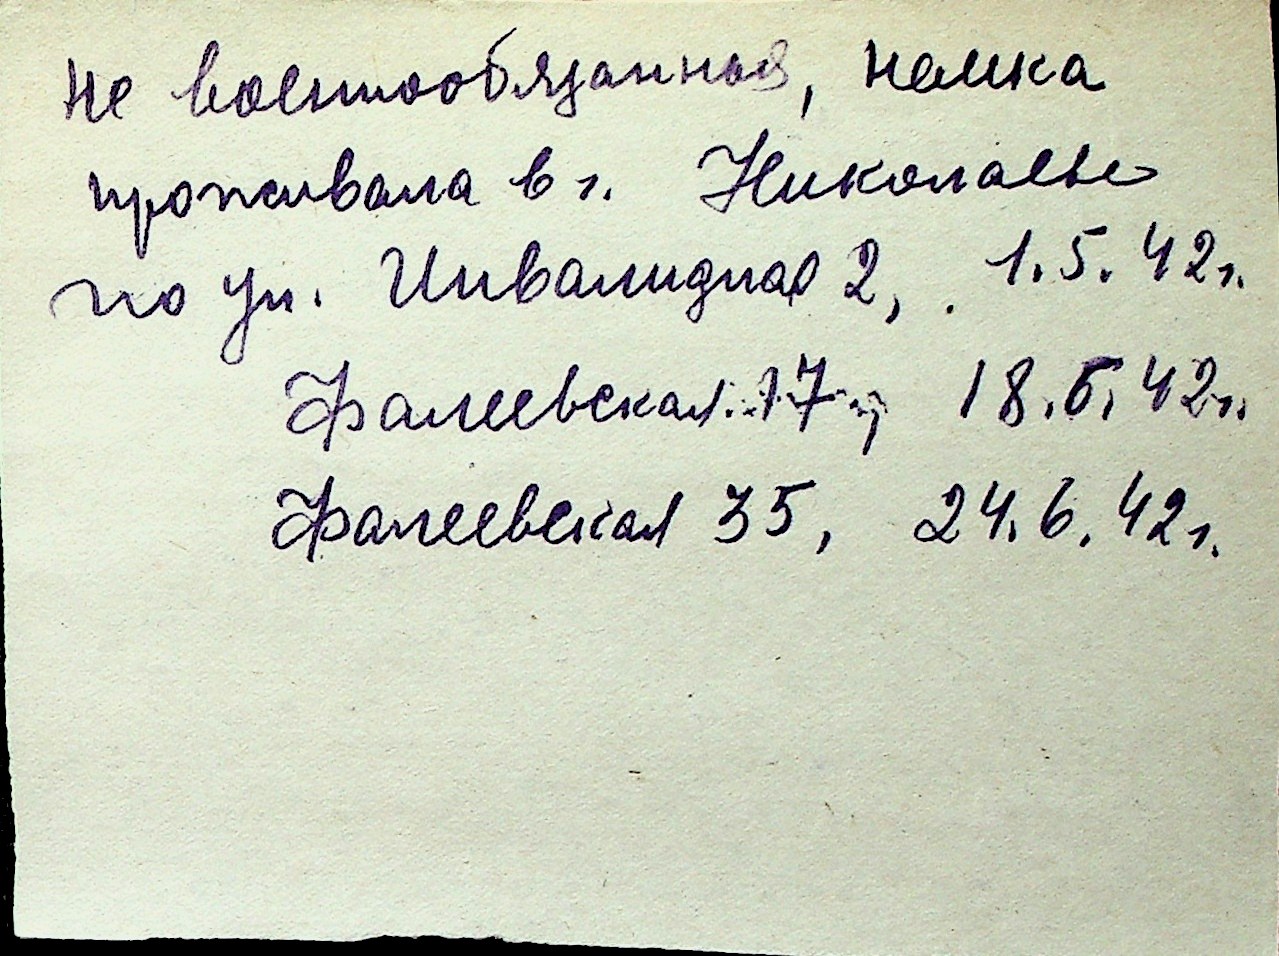 не военнообязанная, немка
проживала в г. Николаеве
по ул. Инвалидная 2, 1.5.42г.
Фалеевская 17, 18.5.42г.
Фалеевская 35, 24.6.42г.